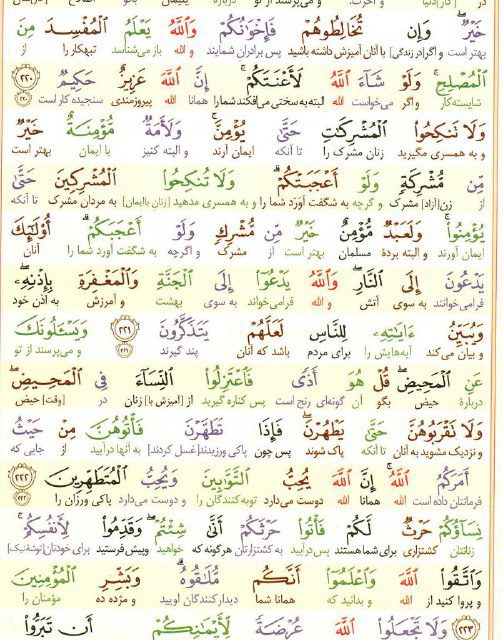 خَيْرٌ وَإِن تُخَالِطُوهُمْ فَإِخْوَانُكُمْ وَاللَّهُ يَعْلَمُ الْمُفْسِدَ مِنَ
بهتر است و اگر [در زندگی] با آنان آمیزش داشته باشید پس برادران شمایند و الله باز می‌شناسد تبهکار را از
الْمُصْلِحِ وَلَوْ شَاءَ اللَّهُ لَأَعْنَتَكُمْ إِنَّ اللَّهَ عَزِيزٌ حَكِيمٌ ٢٢٠
شایسته‌کار و اگر می‌خواست الله البته به سختی می‌افکند شما را همانا الله پیروزمندی سنجیده کار است ٢٢٠
وَلَا تَنكِحُوا الْمُشْرِكَاتِ حَتَّى يُؤْمِنَّ وَلَأَمَةٌ مُّؤْمِنَةٌ خَيْرٌ
و به همسری مگیرید زنان مشرک را تا آنکه ایمان آرند و البته کنیز با ایمان بهتر است
مِّن مُّشْرِكَةٍ وَلَوْ أَعْجَبَتْكُمْ وَلَا تُنكِحُوا الْمُشْرِكِينَ حَتَّى
از زن [آزاد] مشرک و گرچه به شگفت آورد شما را و به همسری مدهید [زنان باایمان] به مردان مشرک تا آنکه
يُؤْمِنُوا وَلَعَبْدٌ مُّؤْمِنٌ خَيْرٌ مِّن مُّشْرِكٍ وَلَوْ أَعْجَبَكُمْ أُولَئِكَ
ایمان آورند و البته بردهٔ مسلمان بهتر است از مشرک و گرچه به شگفت آورد شما را آنان
يَدْعُونَ إِلَى النَّارِ وَاللَّهُ يَدْعُوا إِلَى الْجَنَّةِ وَالْمَغْفِرَةِ بِإِذْنِهِ
فرامی‌خوانند به سوی آتش و الله فرامی‌خواند به سوی بهشت و آمرزش به اذن خود
وَيُبَيِّنُ ءَايَاتِهِ لِلنَّاسِ لَعَلَّهُمْ يَتَذَكَّرُونَ ٢٢١ وَيَسْـَٔلُونَكَ
و بیان می‌کند آیه‌هایش را برای مردم باشد که آنان پند گیرند ٢٢١ و می‌پرسند از تو
عَنِ الْمَحِيضِ قُلْ هُوَ أَذًى فَاعْتَزِلُوا النِّسَاءَ فِي الْمَحِيضِ
دربارهٔ حیض بگو آن گونه‌ای رنج است پس کناره گیرید از [آمیزش با] زنان در [وقت] حیض
وَلَا تَقْرَبُوهُنَّ حَتَّى يَطْهُرْنَ فَإِذَا تَطَهَّرْنَ فَأْتُوهُنَّ مِنْ حَيْثُ
و نزدیک مشوید به آنان تا آنکه پاک شوند پس چون پاکی ورزیدند [غسل کردند] به آنها درآیید از جایی که
أَمَرَكُمُ اللَّهُ إِنَّ اللَّهَ يُحِبُّ التَّوَّابِينَ وَيُحِبُّ الْمُتَطَهِّرِينَ ٢٢٢
فرمانتان داده است الله همانا الله دوست می‌دارد توبه کنندگان را و دوست می‌دارد پاکی ورزان را
نِسَاؤُكُمْ حَرْثٌ لَّكُمْ فَأْتُوا حَرْثَكُمْ أَنَّى شِئْتُمْ وَقَدِّمُوا لِأَنفُسِكُمْ
زنانتان کشتزاری برای شما هستند پس درآیید به کشتزارتان هرگونه که خواهید و پیش فرستید برای خودتان [توشهٔ نیک]
وَاتَّقُوا اللَّهَ وَاعْلَمُوا أَنَّكُم مُّلَاقُوهُ وَبَشِّرِ الْمُؤْمِنِينَ
و پروا کنید از الله و بدانید که همانا شما دیدارکنندگان اویید و مژده ده مؤمنان را
٢٢٣ وَلَا تَجْعَلُوا اللَّهَ عُرْضَةً لِّأَيْمَانِكُمْ أَن تَبَرُّوا